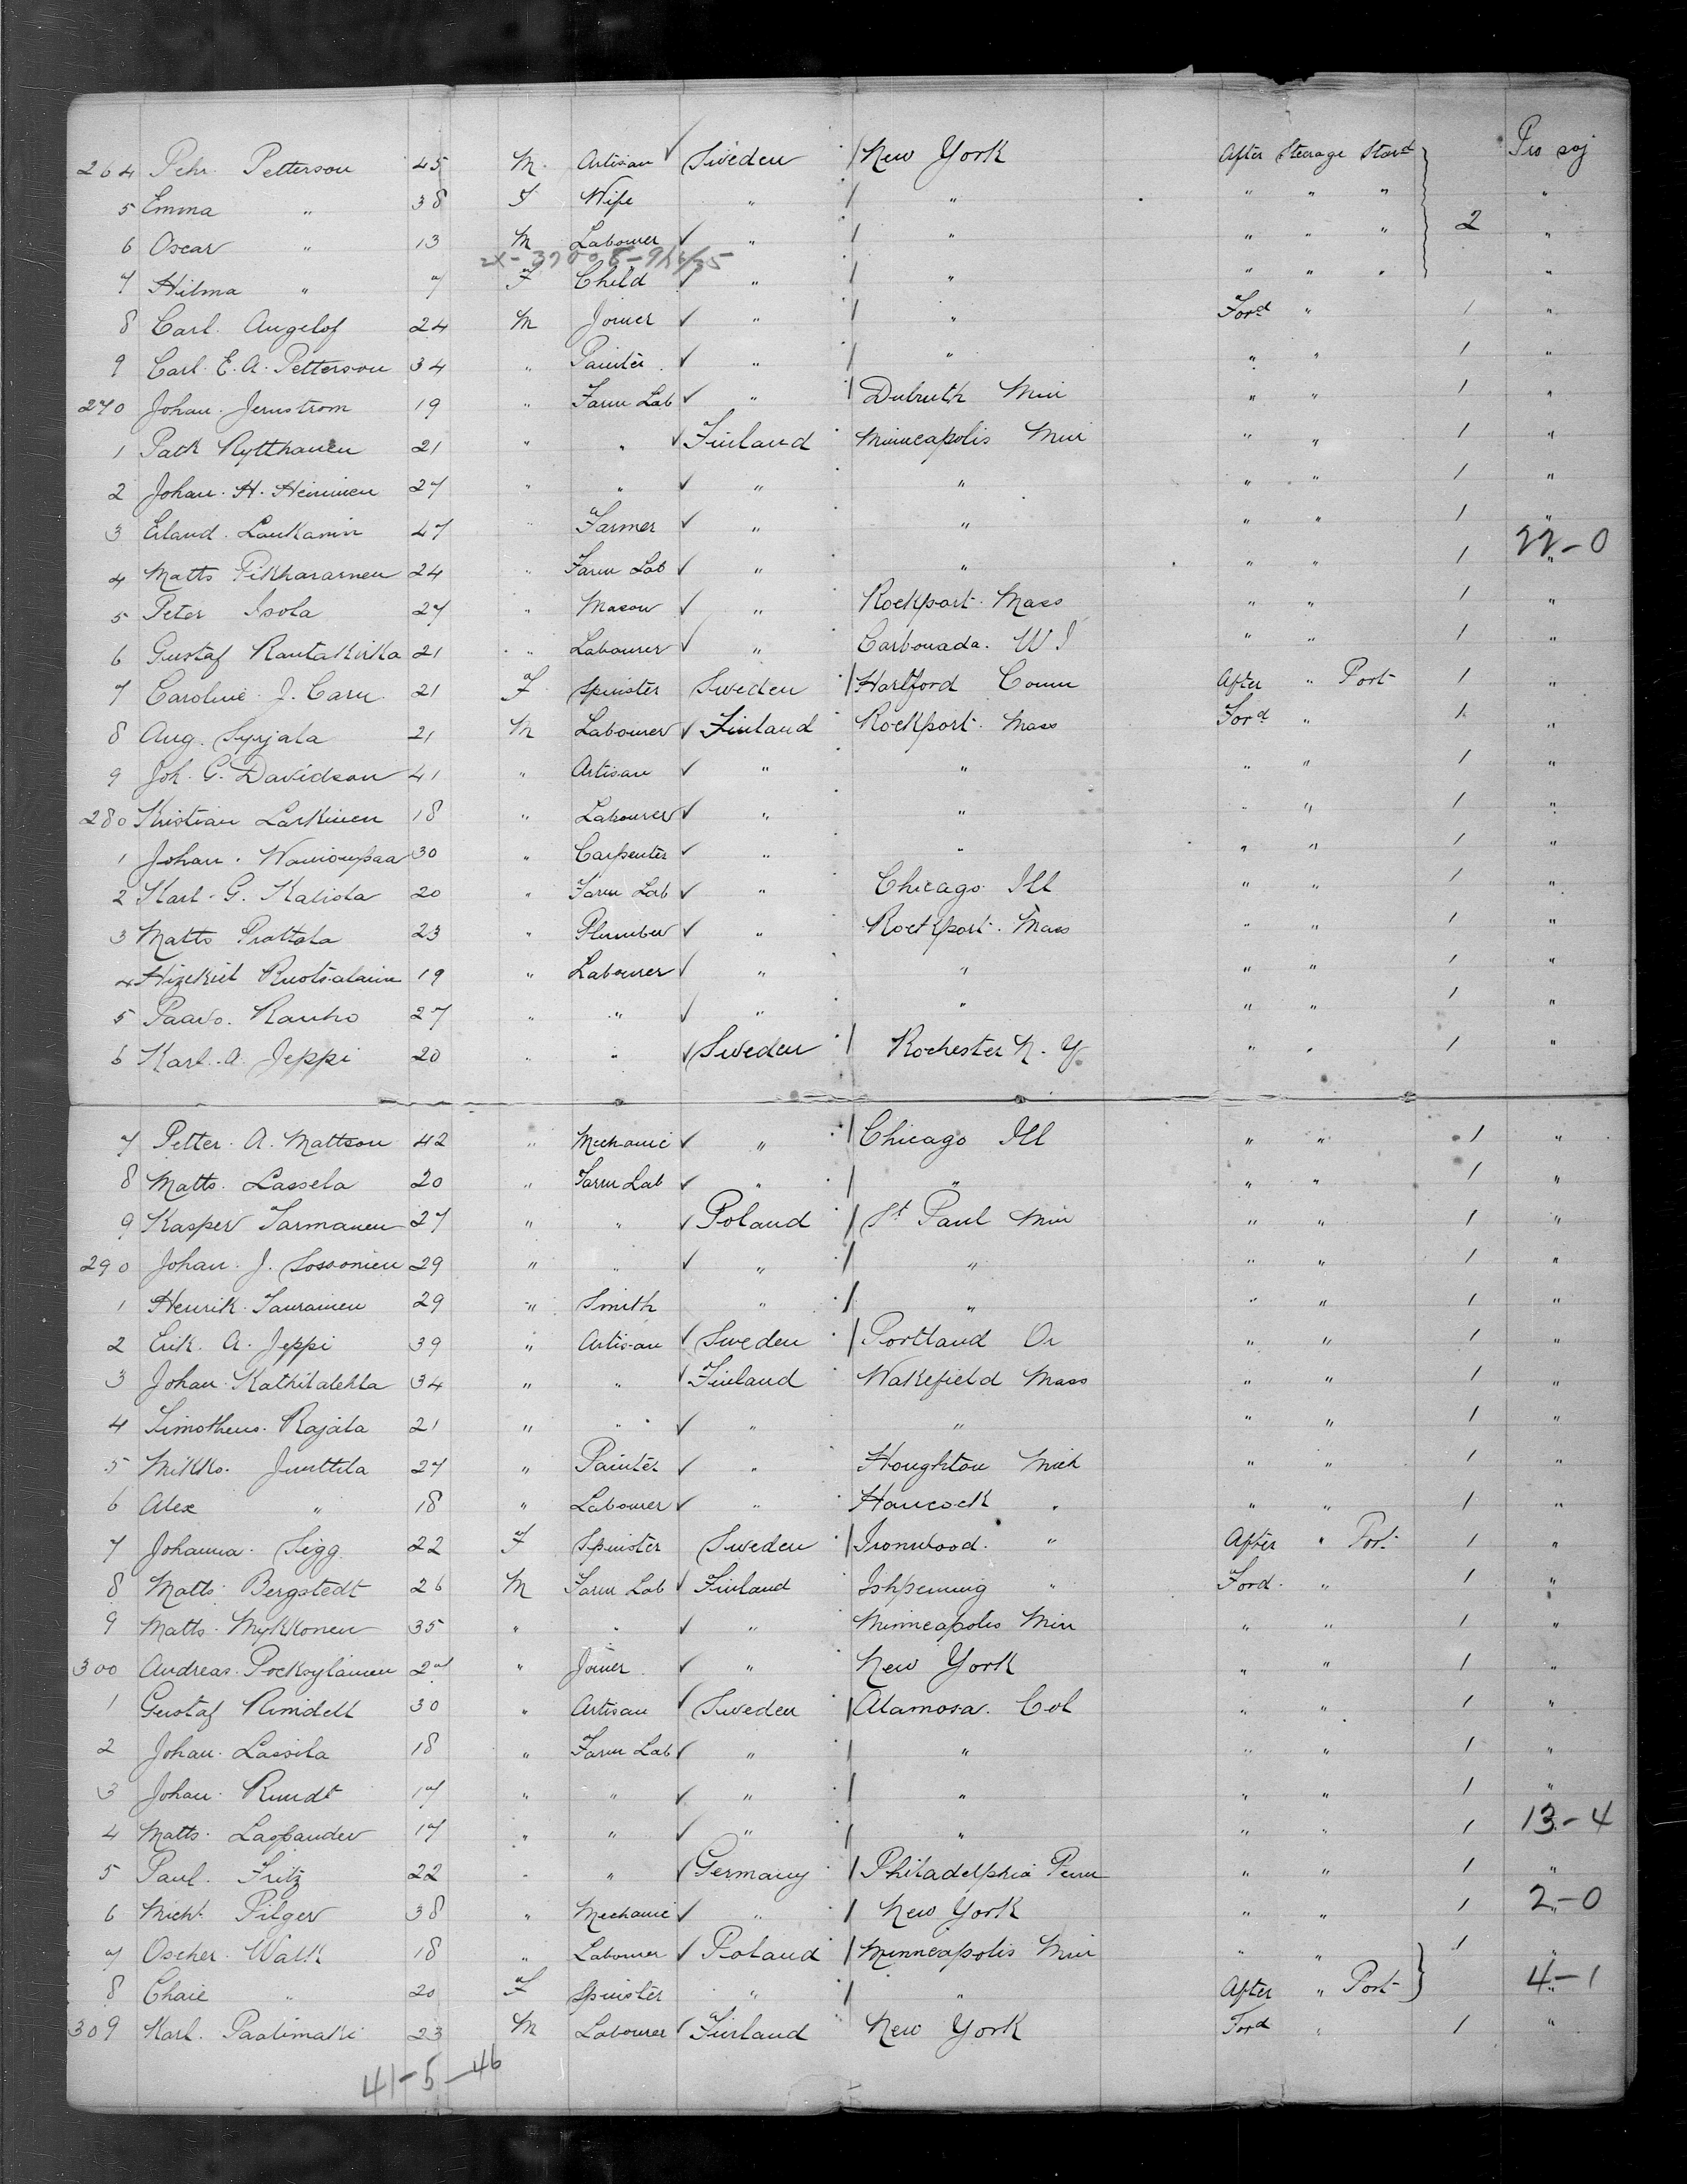 264 Pehr. Petterson 45 M. Artisan ✓ Sweden / New York After Steerage Starbd Pro soj
5 Emma " 38 F Wife " / " " " " "
6 Oscar " 13 M Labourer ✓ " / " " " " 2 "
7 Hilma " 7 F Child ✓ " / " " " " "
8 Carl. Angelof 24 M Joiner ✓ " / " Ford " 1 "
9 Carl. E. A. Petterson 34 " Painter. ✓ " / " " " 1 "
270 Johan. Jernstrom 19 " Farm Lab ✓ " / Duluth Min " " 1 "
1 Patk Rytthanen 21 " " ✓ Finland Minneapolis Min " " 1 "
2 Johan. H. Heininen 27 " " ✓ " " " " 1 "
3 Erland. Laukanin 47 " Farmer ✓ " " " " 1 "
22-0
4 Matts Pikhararnen 24 " Farm Lab ✓ " " " " 1 "
5 Peter Isola 27 " Mason ✓ " Rockport. Mass " " 1 "
6 Gustaf Rautakirka 21 " Labourer ✓ " Carbonada. W J " " 1 "
7 Caroline. J. Carn. 21 F Spinster Sweden / Hartford Conn After " Port 1 "
8 Aug. Syrjala 21 M Labourer ✓ Finland Rockport. Mass Ford " 1 "
9 Joh. G. Davidson 41 " Artisan ✓ " " " " 1 "
280 Kristian Larkinen 18 " Labourer ✓ " " " " 1 "
1 Johan. Wainionpaa 30 " Carpenter ✓ " " " " 1 "
2 Karl. G. Kalista 20 " Farm Lab ✓ " Chicago Ill " " 1 "
3 Matts Prattala 23 " Plumber ✓ " Rockport. Mass " " 1 "
4 Hizekiel Ruotsalainn 19 " Labourer ✓ " " " " 1 "
5 Paavo. Rauho 27 " " ✓ " " " " 1 "
6 Karl. A. Jeppi 20 " " ✓ Sweden / Rochester N. Y " " 1 "
7 Petter. A. Mattson 42 " Mechanic ✓ " / Chicago Ill " " 1 "
8 Matts. Lassela 20 " Farm Lab ✓ " / " " " 1 "
9 Kasper Tarmanen 27 " " ✓ Poland / St Paul Min " " 1 "
290 Johan. J. Sossonien 29 " " ✓ " / " " " 1 "
1 Henrik. Taurainen 29 " Smith " / " " " 1 "
2 Erik. A. Jeppi 39 " Artisan ✓ Sweden / Portland Or " " 1 "
3 Johan. Kathilalehta 34 " " ✓ Finland Wakefield Mass " " 1 "
4 Timotheus. Rajala 21 " " ✓ " " " " 1 "
5 Mikko. Junttila 27 " Painter ✓ " Houghton Mich " " 1 "
6 Alex " 18 " Labourer ✓ " Hancock " " " 1 "
7 Johanna. Sigg. 22 F Spinster Sweden / Ironwood. " After " Port 1 "
8 Matts. Bergstedt 26 M Farm Lab ✓ Finland Ishpeming " Ford. " 1 "
9 Matts. Mykkonen 35 " " ✓ " Minneapolis Min " " 1 "
300 Andreas. Pocksylainen 27 " Joiner ✓ " New York " " 1 "
1 Gustaf Rimdell 30 " Artisan ✓ Sweden / Alamosa. Col " " 1 "
2 Johan. Lassila 18 " Farm Lab ✓ " / " " " 1 "
3 Johan. Rundt 17 " " ✓ " / " " " 1 "
4 Matts. 17 " " ✓ " / " " " 1 13-4
5 Paul. Fritz 22 " " ✓ Germany / Philadelphia Penn " " 1 "
6 Michl. Pilger 38 " Mechanic ✓ " / New York " " 1 2-0
7 Oscher. Walk 18 " Labourer ✓ Poland / Minneapolis Min " " 1 "
8 Chaie " 20 F Spinster " / " After " Port 4-1
309 Karl. Paalimaki 23 M Labourer ✓ Finland New York Ford " 1 "
41-5-46